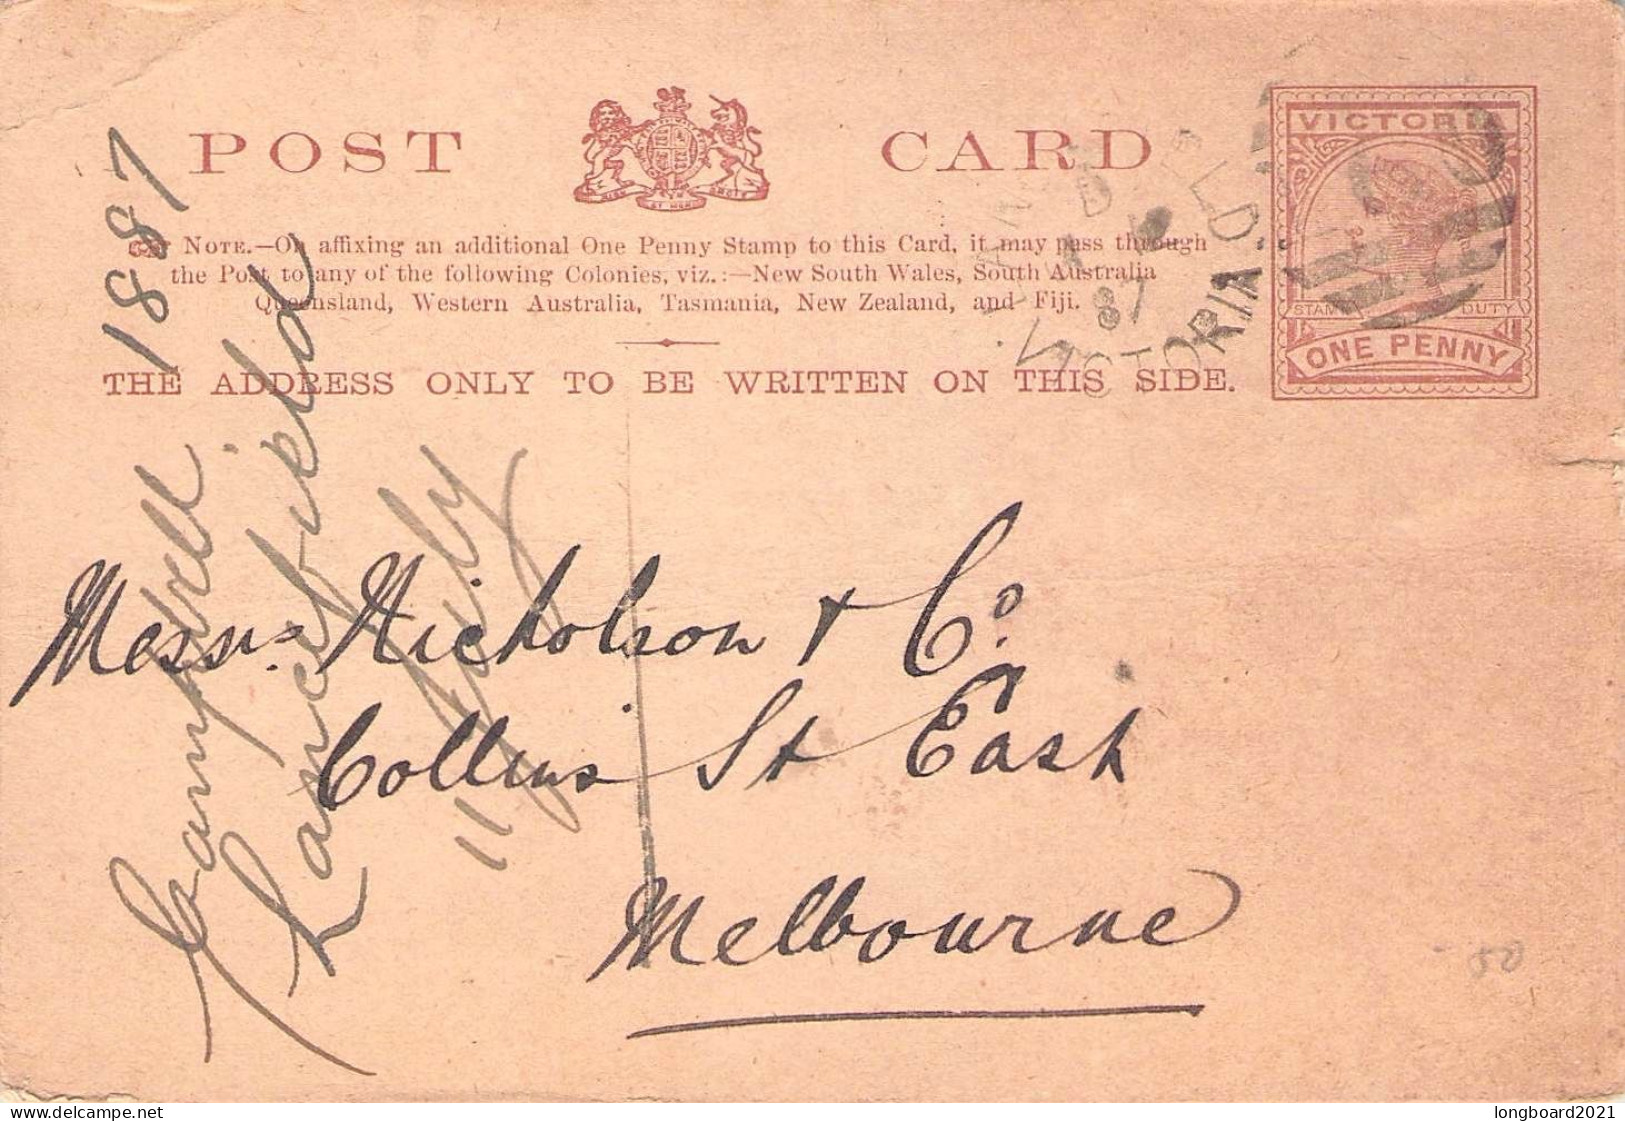 POST CARD
NOTE.—On affixing an additional One Penny Stamp to this Card, it may pass through
the Post to any of the following Colonies, viz.:—New South Wales, South Australia
Queensland, Western Australia, Tasmania, New Zealand, and Fiji.
THE ADDRESS ONLY TO BE WRITTEN ON THIS SIDE.
VICTORIA
STAMP DUTY
ONE PENNY
87
VICTORIA
Messrs. Nicholson & Co.
Collins St East
Melbourne
Campbell. 1887
Lancefield
11 July
- 50
longboard2021